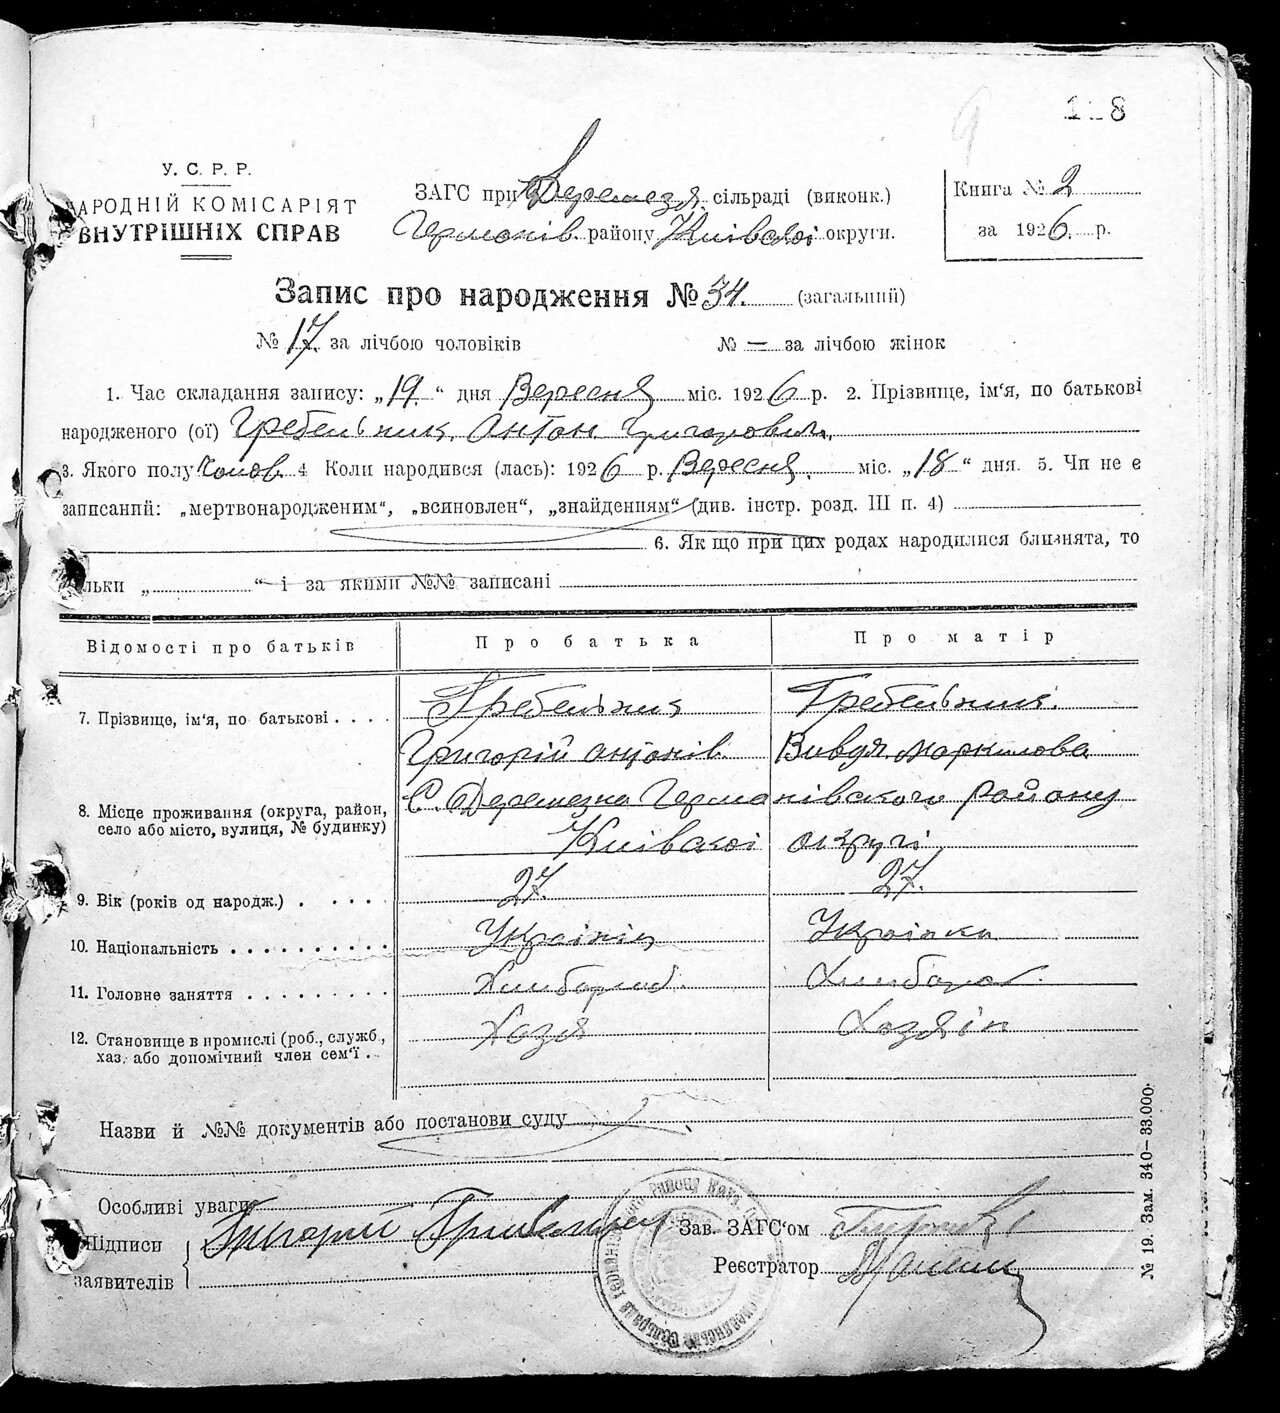 118
У. С. Р. Р.
НАРОДНІЙ КОМІСАРІЯТ
ВНУТРІШНІХ СПРАВ
ЗАГС при Деремезя. сільраді (виконк.)
Германів. району Київської округи.
Книга № 2
за 1926. р.
Запис про народження № 34. (загальний)
№ 17. за лічбою чоловіків № — за лічбою жінок
1. Час складання запису: „19.“ дня Вересня міс. 1926 р. 2. Прізвище, ім‘я, по батькові
народженого (ої) Гребельник. Антон Григорович.
3. Якого полу Чолов. 4 Коли народився (лась): 1926 р. Вересня. міс. „18“ дня. 5. Чи не є
записаний: „мертвонародженим“, „всиновлен“, „знайденням“ (див. інстр. розд. III п. 4)
6. Як що при цих родах народилися близнята, то
льки „ “ і за якими №№ записані
Відомості про батьків Про батька Про матір
7. Прізвище, ім‘я, по батькові . . . . Гребельник Гребельник.
Григорій Антонів. Вивдя
8. Місце проживання (округа, район,
село або місто, вулиця, № будинку)
С. Деремезна Германівського району
Київської округі
9. Вік (років од народж.) . . . . . 27. 27.
10. Національність . . . . . . . . . . Українець Українка
11. Головне заняття . . . . . . . . . Хлібороб. Хлібороб.
12. Становище в промислі (роб., служб.,
хаз. або допомічний член сем‘ї . .
Хазя Хазяін
Назви й №№ документів або постанови суду
Особливі уваги
Підписи
заявителів
Григорий
Зав. ЗАГС‘ом
Реєстратор
№ 19. Зам. 340—33.000.